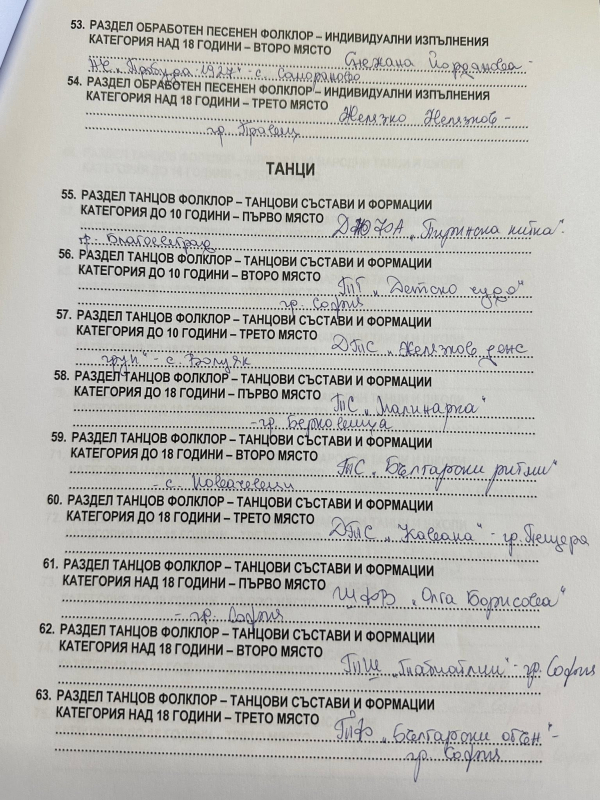 53. РАЗДЕЛ ОБРАБОТЕН ПЕСЕНЕН ФОЛКЛОР – ИНДИВИДУАЛНИ ИЗПЪЛНЕНИЯ
КАТЕГОРИЯ НАД 18 ГОДИНИ – ВТОРО МЯСТО Снежана Йорданова -
НЧ „Пробуда-1927“ - с. Самораново
54. РАЗДЕЛ ОБРАБОТЕН ПЕСЕНЕН ФОЛКЛОР – ИНДИВИДУАЛНИ ИЗПЪЛНЕНИЯ
КАТЕГОРИЯ НАД 18 ГОДИНИ – ТРЕТО МЯСТО Желязко Желязков -
гр. Правец
ТАНЦИ
55. РАЗДЕЛ ТАНЦОВ ФОЛКЛОР – ТАНЦОВИ СЪСТАВИ И ФОРМАЦИИ
КАТЕГОРИЯ ДО 10 ГОДИНИ – ПЪРВО МЯСТО „Пиринска китка“ -
гр. Благоевград
56. РАЗДЕЛ ТАНЦОВ ФОЛКЛОР – ТАНЦОВИ СЪСТАВИ И ФОРМАЦИИ
КАТЕГОРИЯ ДО 10 ГОДИНИ – ВТОРО МЯСТО ТГ „Детско чудо“
гр. София
57. РАЗДЕЛ ТАНЦОВ ФОЛКЛОР – ТАНЦОВИ СЪСТАВИ И ФОРМАЦИИ
КАТЕГОРИЯ ДО 10 ГОДИНИ – ТРЕТО МЯСТО ДТС „Желязков денс
груп“ - с. Волуяк
58. РАЗДЕЛ ТАНЦОВ ФОЛКЛОР – ТАНЦОВИ СЪСТАВИ И ФОРМАЦИИ
КАТЕГОРИЯ ДО 18 ГОДИНИ – ПЪРВО МЯСТО ТС „Малинарка“
- гр. Берковица
59. РАЗДЕЛ ТАНЦОВ ФОЛКЛОР – ТАНЦОВИ СЪСТАВИ И ФОРМАЦИИ
КАТЕГОРИЯ ДО 18 ГОДИНИ – ВТОРО МЯСТО ТС „Български ритми“
- с. Ковачевци
60. РАЗДЕЛ ТАНЦОВ ФОЛКЛОР – ТАНЦОВИ СЪСТАВИ И ФОРМАЦИИ
КАТЕГОРИЯ ДО 18 ГОДИНИ – ТРЕТО МЯСТО ДТС „Кавала“ - гр. Пещера
61. РАЗДЕЛ ТАНЦОВ ФОЛКЛОР – ТАНЦОВИ СЪСТАВИ И ФОРМАЦИИ
КАТЕГОРИЯ НАД 18 ГОДИНИ – ПЪРВО МЯСТО ШФВ „Олга Борисова“
- гр. София
62. РАЗДЕЛ ТАНЦОВ ФОЛКЛОР – ТАНЦОВИ СЪСТАВИ И ФОРМАЦИИ
КАТЕГОРИЯ НАД 18 ГОДИНИ – ВТОРО МЯСТО - гр. София
63. РАЗДЕЛ ТАНЦОВ ФОЛКЛОР – ТАНЦОВИ СЪСТАВИ И ФОРМАЦИИ
КАТЕГОРИЯ НАД 18 ГОДИНИ – ТРЕТО МЯСТО ТФ „Български огън“ -
гр. София